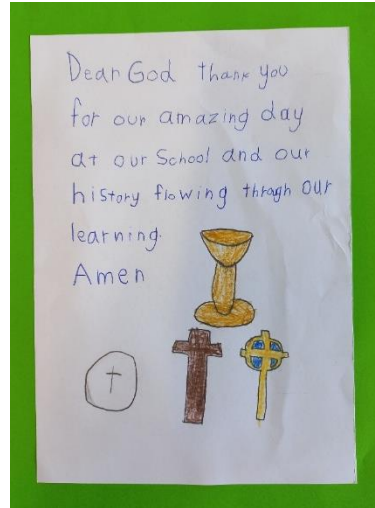 Dear God thank you
for our amazing day
at our School and our
history flowing throgh our
learning.
Amen